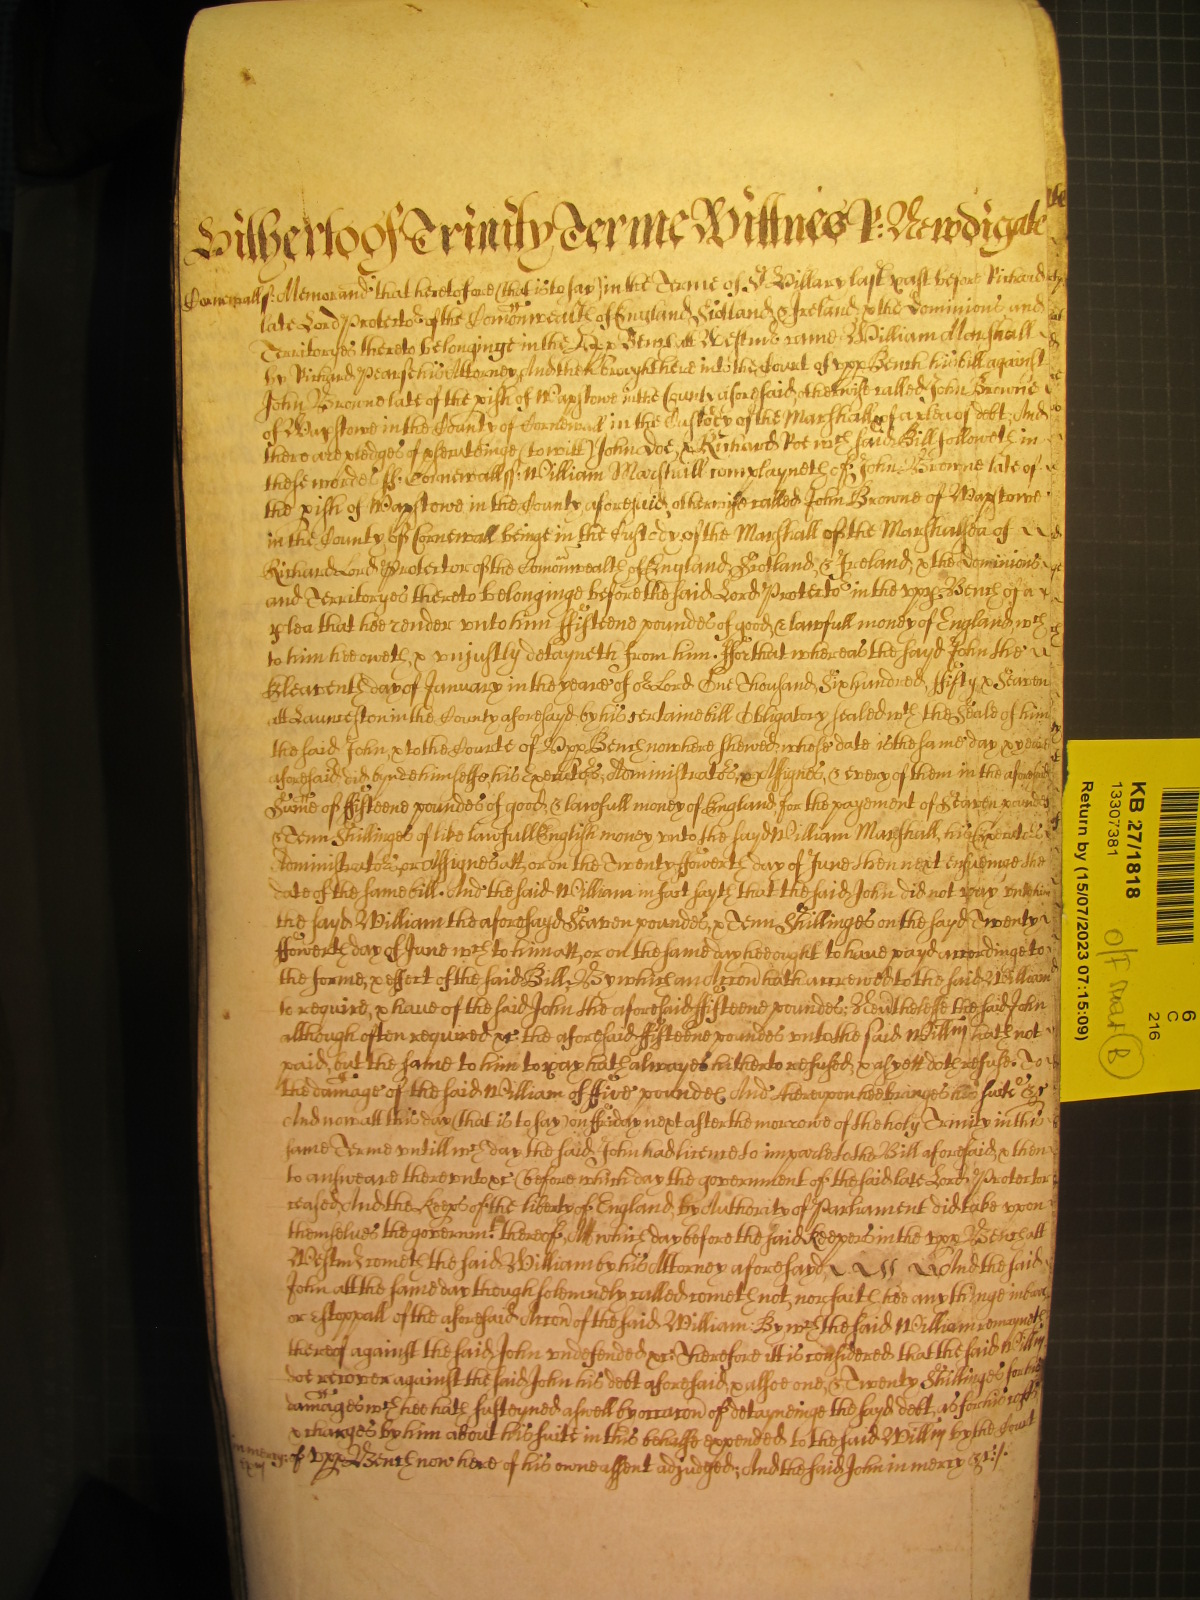 Hitherto of Trinity Terme Wittnes R: Newdigate
Cornewall ss. Memorand that heretofore (that is to say) in the Terme of St Hillary last past before Richard
late Lord Protector of the Comonwealth of England Scotland & Ireland & the Dominions and
Territoryes thereto belonginge in the upp Bench att Westmr came William Marshall
by Richard Pearse his Attorney, And then brought here into the Court of upp Bench his bill against
John Browne late of the pish of Wapstowe in the County aforesaid, otherwise called John Browne
of Wapstowe in the County of Cornewall in the Custody of the Marshall &c of a plea of debt, And
there are pledges of prosecutinge (to witt) John Doe, & Richard Roe wch said Bill followeth in
these wordes ss. Cornewall ss. William Marshall complayneth of John Browne late of
the pish of Wapstowe in the County aforesaid, otherwise called John Browne of Wapstowe
in the County of Cornewall beinge in the Custody of the Marshall of the Marshalsea of
Richard Lord Protector of the Comonwealth of England, Scotland, & Ireland, & the Dominions
and Territoryes thereto belonginge before the said Lord Protector in the upp Bench of a
plea that hee render unto him ffifteene poundes of good, & lawfull money of England wch
to him hee oweth, & unjustly detayneth from him. ffor that whereas the sayd John the
Eleaventh day of January in the yeare of or Lord One Thousand, Six hundred, ffifty, & Seaven
att Launceston in the County aforesayd by his certaine bill Obligatory sealed wth the Seale of him
the said John, & to the Courte of Upp Bench now here shewed, whose date is the same day & yeare
aforesaid, did bynde himselfe his Executors, Administrators, & Assignes, & every of them in the aforesaid
Sume of ffifteene poundes of good, & lawfull money of England, for the payement of Seaven poundes
& Tenn Shillinges of like lawfull English money unto the sayd William Marshall, his Executors
Administrators or Assignes att, or on the Twenty ffowerth day of June then next ensueinge the
date of the same bill. And the said William in fact sayth that the said John did not pay unto him
the sayd William the aforesayd Seaven poundes, & Tenn Shillinges on the sayd Twenty
ffowerth day of June wch to him att, or on the same day hee ought to have payd accordinge to
the forme, & effect of the said Bill, By which an Accon hath accrewed to the said William
to require, & have of the said John the aforesaid ffifteene poundes: Neverthelesse the said John
although often required &c the aforesaid ffifteene poundes unto the said Willm hath not
paid, but the same to him to pay hath alwayes hitherto refused, & as yett doth refuse. To
the damage of the said William of ffive poundes And thereupon hee bringes his suite &c
And now att this day (that is to say) on ffriday next after the morrowe of the holy Trinity in this
same Terme untill wch day the said John had licence to imparle to the Bill aforesaid, & then
to answeare thereunto &c (before which day the government of the said late Lord Protector
ceased, And the Keeprs of the liberty of England, by Authority of Parliament did take upon
themselves the governmt thereof, Att which day before the said Keepers in the upp Bench att
Westmr cometh the said William by his Attorney aforesayd, And the said
John att the same day though solemnely called cometh not, nor saith hee any thinge in barr
or Estoppall of the aforesaid Accon of the said William: By wch the said William remayneth
thereof against the said John undefended &c Therefore itt is considered that the said Willm
doe recover against the said John his debt aforesaid, & alsoe one, & Twenty Shillinges for his
damages wch hee hath susteyned aswell by occacon of detayneinge the sayd debt, as for his costes
& charges by him about his suite in this behalfe expended to the said Willm by the Court
of upp Bench now here of his owne assent adjudged; And the said John in mercy &c:/.
in mercy
KB 27/1818
13307381
Return by (15/07/2023 07:15:09)
6
C
216
B